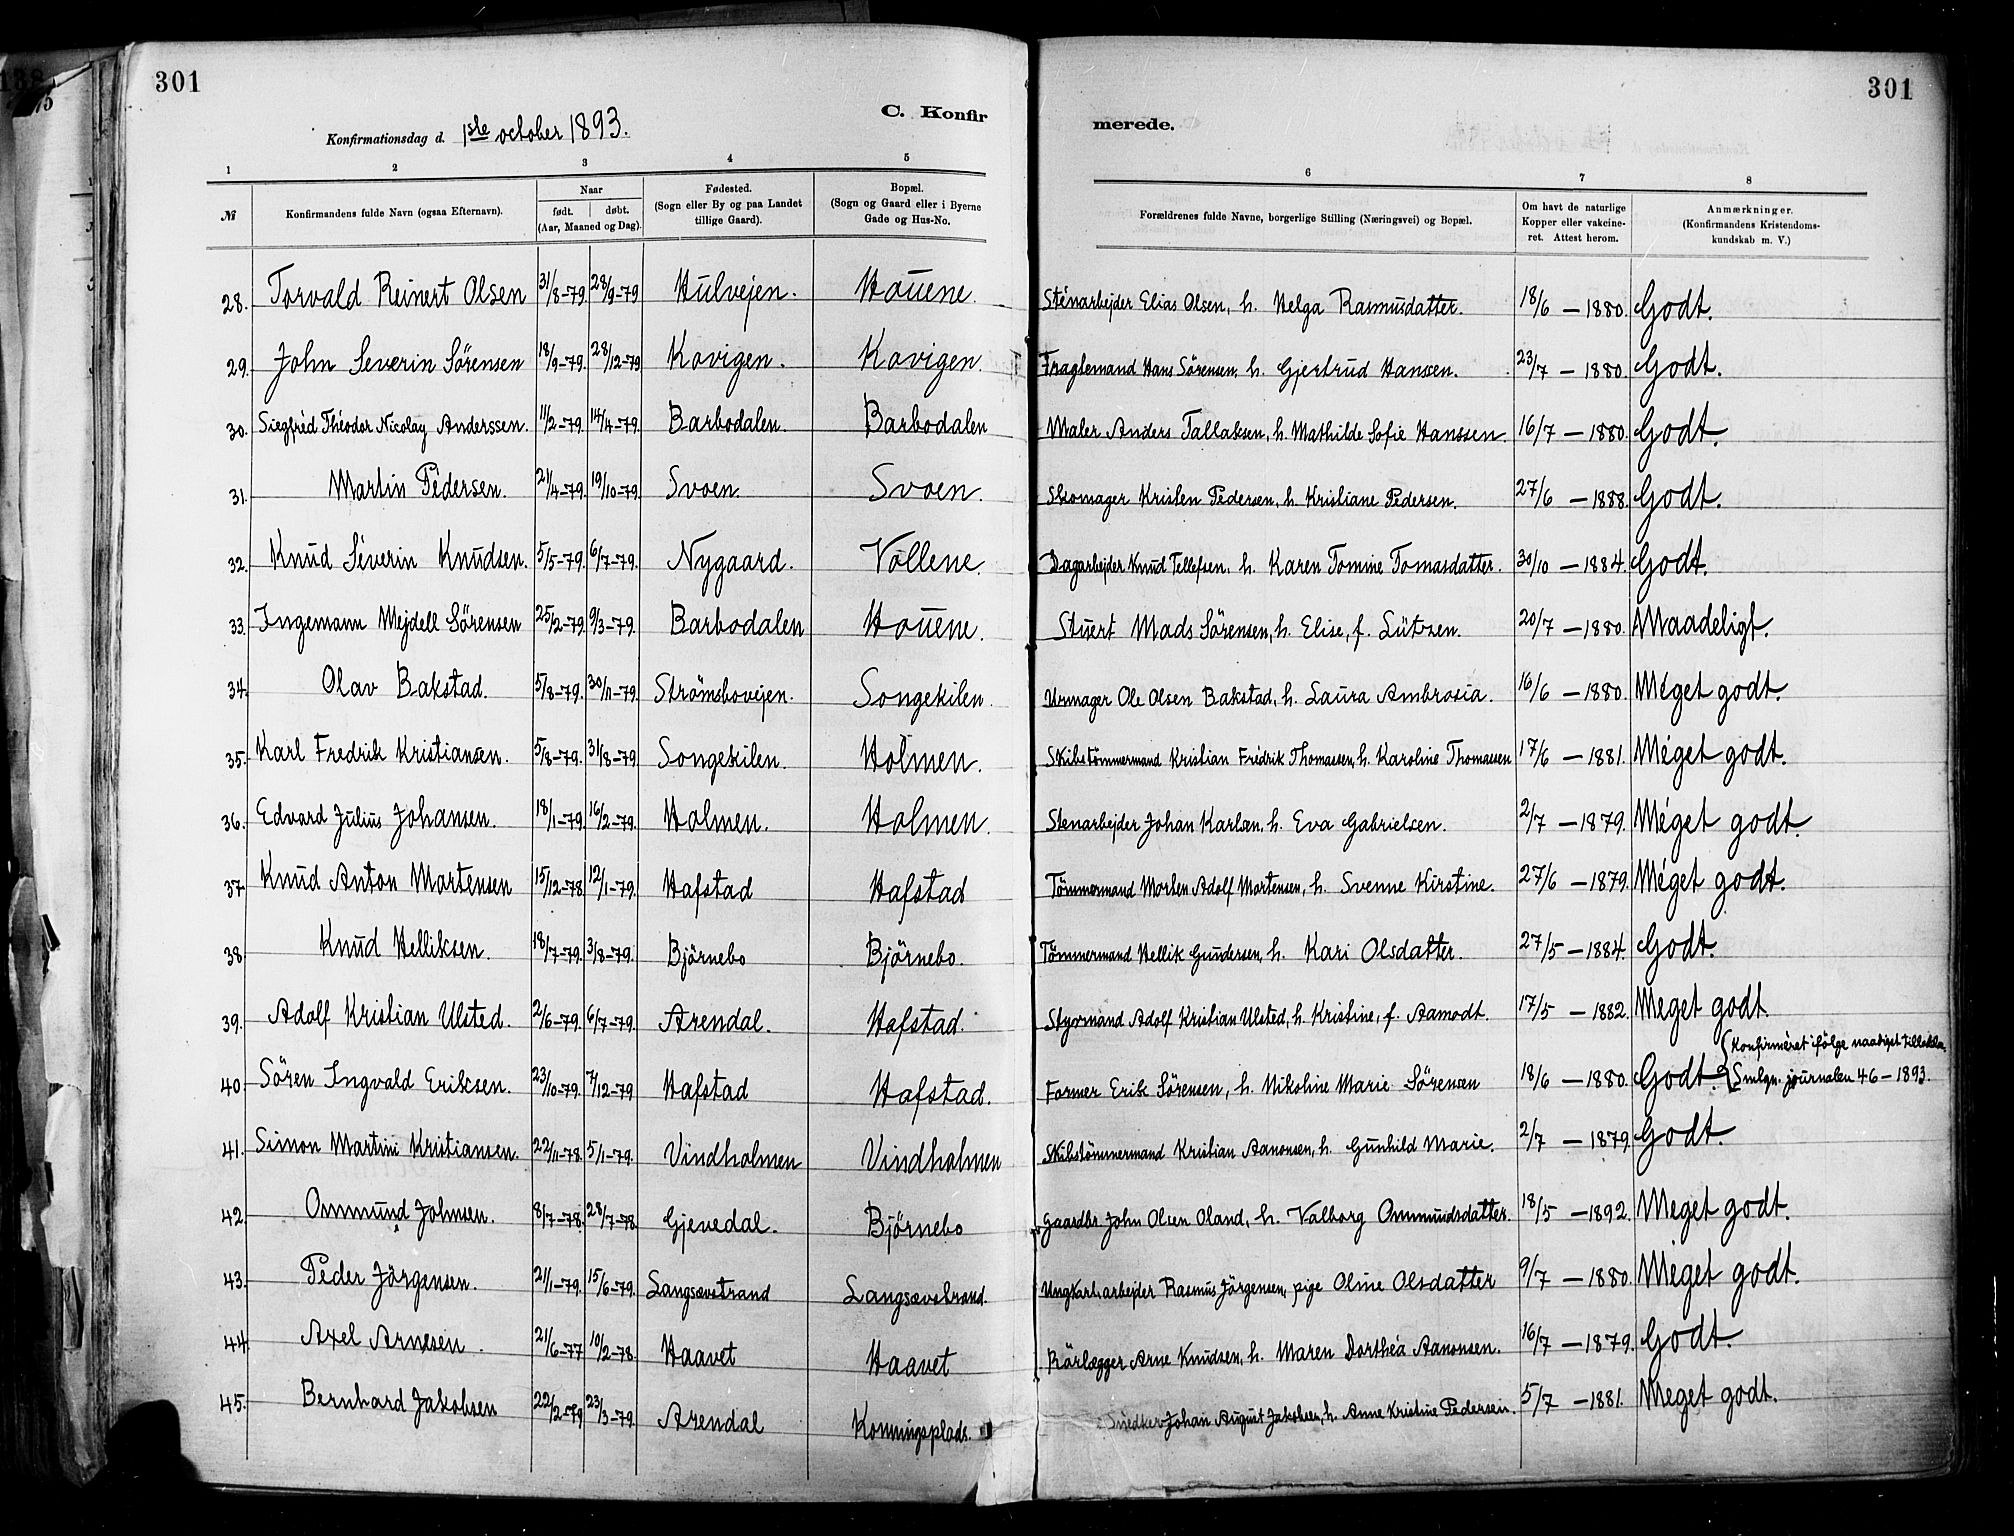 301
301
C. Konfir
merede.
Konfirmationsdag d. 1ste october 1893.
1 2 3 4 5 6 7 8
№ Konfirmandens fulde Navn (ogsaa Efternavn). Naar født. døbt. (Aar, Maaned og Dag). Fødested. (Sogn eller By og paa Landet tillige Gaard). Bopæl. (Sogn og Gaard eller i Byerne Gade og Hus-No. Forældrenes fulde Navne, borgerlige Stilling (Næringsvei) og Bopæl. Om havt de naturlige Kopper eller vakcineret. Attest herom. Anmærkninger. (Konfirmandens Kristendomskundskab m. V.)
28. Torvald Reinert Olsen 31/8-79. 28/9-79 Hulvejen. Houene. Stenarbejder Elias Olsen, h. Helga Rasmusdatter. 18/6 – 1880. Godt.
29. John Severin Sörensen 18/9-79. 28/12-79 Kovigen. Kovigen. Fragtemand Hans Sörensen, h. Gjertrud Hansen. 23/7 – 1880. Godt.
30. Siegfred Theodor Nicolay Anderssen. 11/2-79. 14/4-79. Barbodalen. Barbodalen Maler Anders Tallaksen, h. Mathilde Sofie Hanssen. 16/7 – 1880. Godt.
31. Martin Pedersen. 21/4-79. 19/10-79. Svoen. Svoen. Skomager Kristen Pedersen, h. Kristiane Pedersen. 27/6 – 1888. Godt.
32. Knud Severin Knudsen. 5/5-79. 6/7-79. Nygaard. Vollene. Dagarbejder Knud Tellefsen, h. Karen Tomine Tomasdatter. 30/10 – 1884. Godt.
33. Ingemann Mejdell Sörensen 25/2-79. 9/3-79. Barbodalen Houene. Stuert Mads Sörensen, h. Elise, f. Lützen. 20/7 – 1880. Maadeligt.
34. Olav Bakstad. 5/8-79. 30/11-79. Strömsbovejen. Songekilen. Urmager Ole Olsen Bakstad, h. Laura Ambrosia. 16/6 – 1880. Meget godt.
35. Karl Fredrik Kristiansen. 5/8-79. 31/8-79 Songekilen. Holmen. Skibstömmermand Kristian Fredrik Thomassen, h. Karoline Thomassen 17/6 – 1881. Meget godt.
36. Edvard Julius Johansen. 18/1-79. 16/2-79. Holmen. Holmen. Stenarbejder Johan Karlsen, h. Eva Gabrielsen. 2/7 – 1879. Meget godt.
37. Knud Anton Mortensen 15/12-78. 12/1-79. Hafstad Hafstad Tömmermand Morten Adolf Mortensen, h. Svenne Kirstine. 27/6 – 1879. Meget godt.
38 Knud Helliksen. 18/7-79. 3/8-79. Björnebo Björnebo. Tömmermand Hellik Gundersen, h. Kari Olsdatter. 27/5 – 1884. Godt.
39. Adolf Kristian Ulsted. 2/6-79. 6/7-79. Arendal. Hafstad. Styrmand Adolf Kristian Ulsted, h. Kristine, f. Aamodt. 17/5 – 1882. Meget godt.
40. Sören Ingvald Eriksen. 23/10-79. 7/12-79 Hafstad Hafstad. Former Erik Sörensen, h. Nikoline Marie Sörensen 18/6 – 1880. Godt. Konfirmeret ifölge naadigst Smlgn. journalen 46 – 1893.
41. Simon Martini Kristiansen. 22/11-78. 5/1-79. Vindholmen Vindholmen Skibstömmermand Kristian Aanonsen, h. Gunhild Marie. 2/7 – 1879. Godt.
42. Ommund Johnsen. 8/7-78. 28/7-78. Gjevedal. Björnebo Gaardbr John Olsen Oland, h. Valborg Ommundsdatter. 18/5 – 1892. Meget godt.
43. Peder Jörgensen. 21/1-79. 15/6-79. Langsævstrand Langsævstrand. Ungkarl, arbejder Rasmus Jörgensen, pige Oline Olsdatter 9/7 – 1880. Meget godt.
44. Axel Arnesen. 21/6-77 10/2-78. Haavet Haavet Rörlægger Arne Knudsen, h. Maren Dorthea Aanonsen. 16/7 – 1879. Godt.
45. Bernhard Jakobsen 22/2-79 23/3-79. Arendal Konningsplads. Snedker Johan August Jakobsen, h. Anne Kristine Pedersen. 5/7 – 1881. Meget godt.